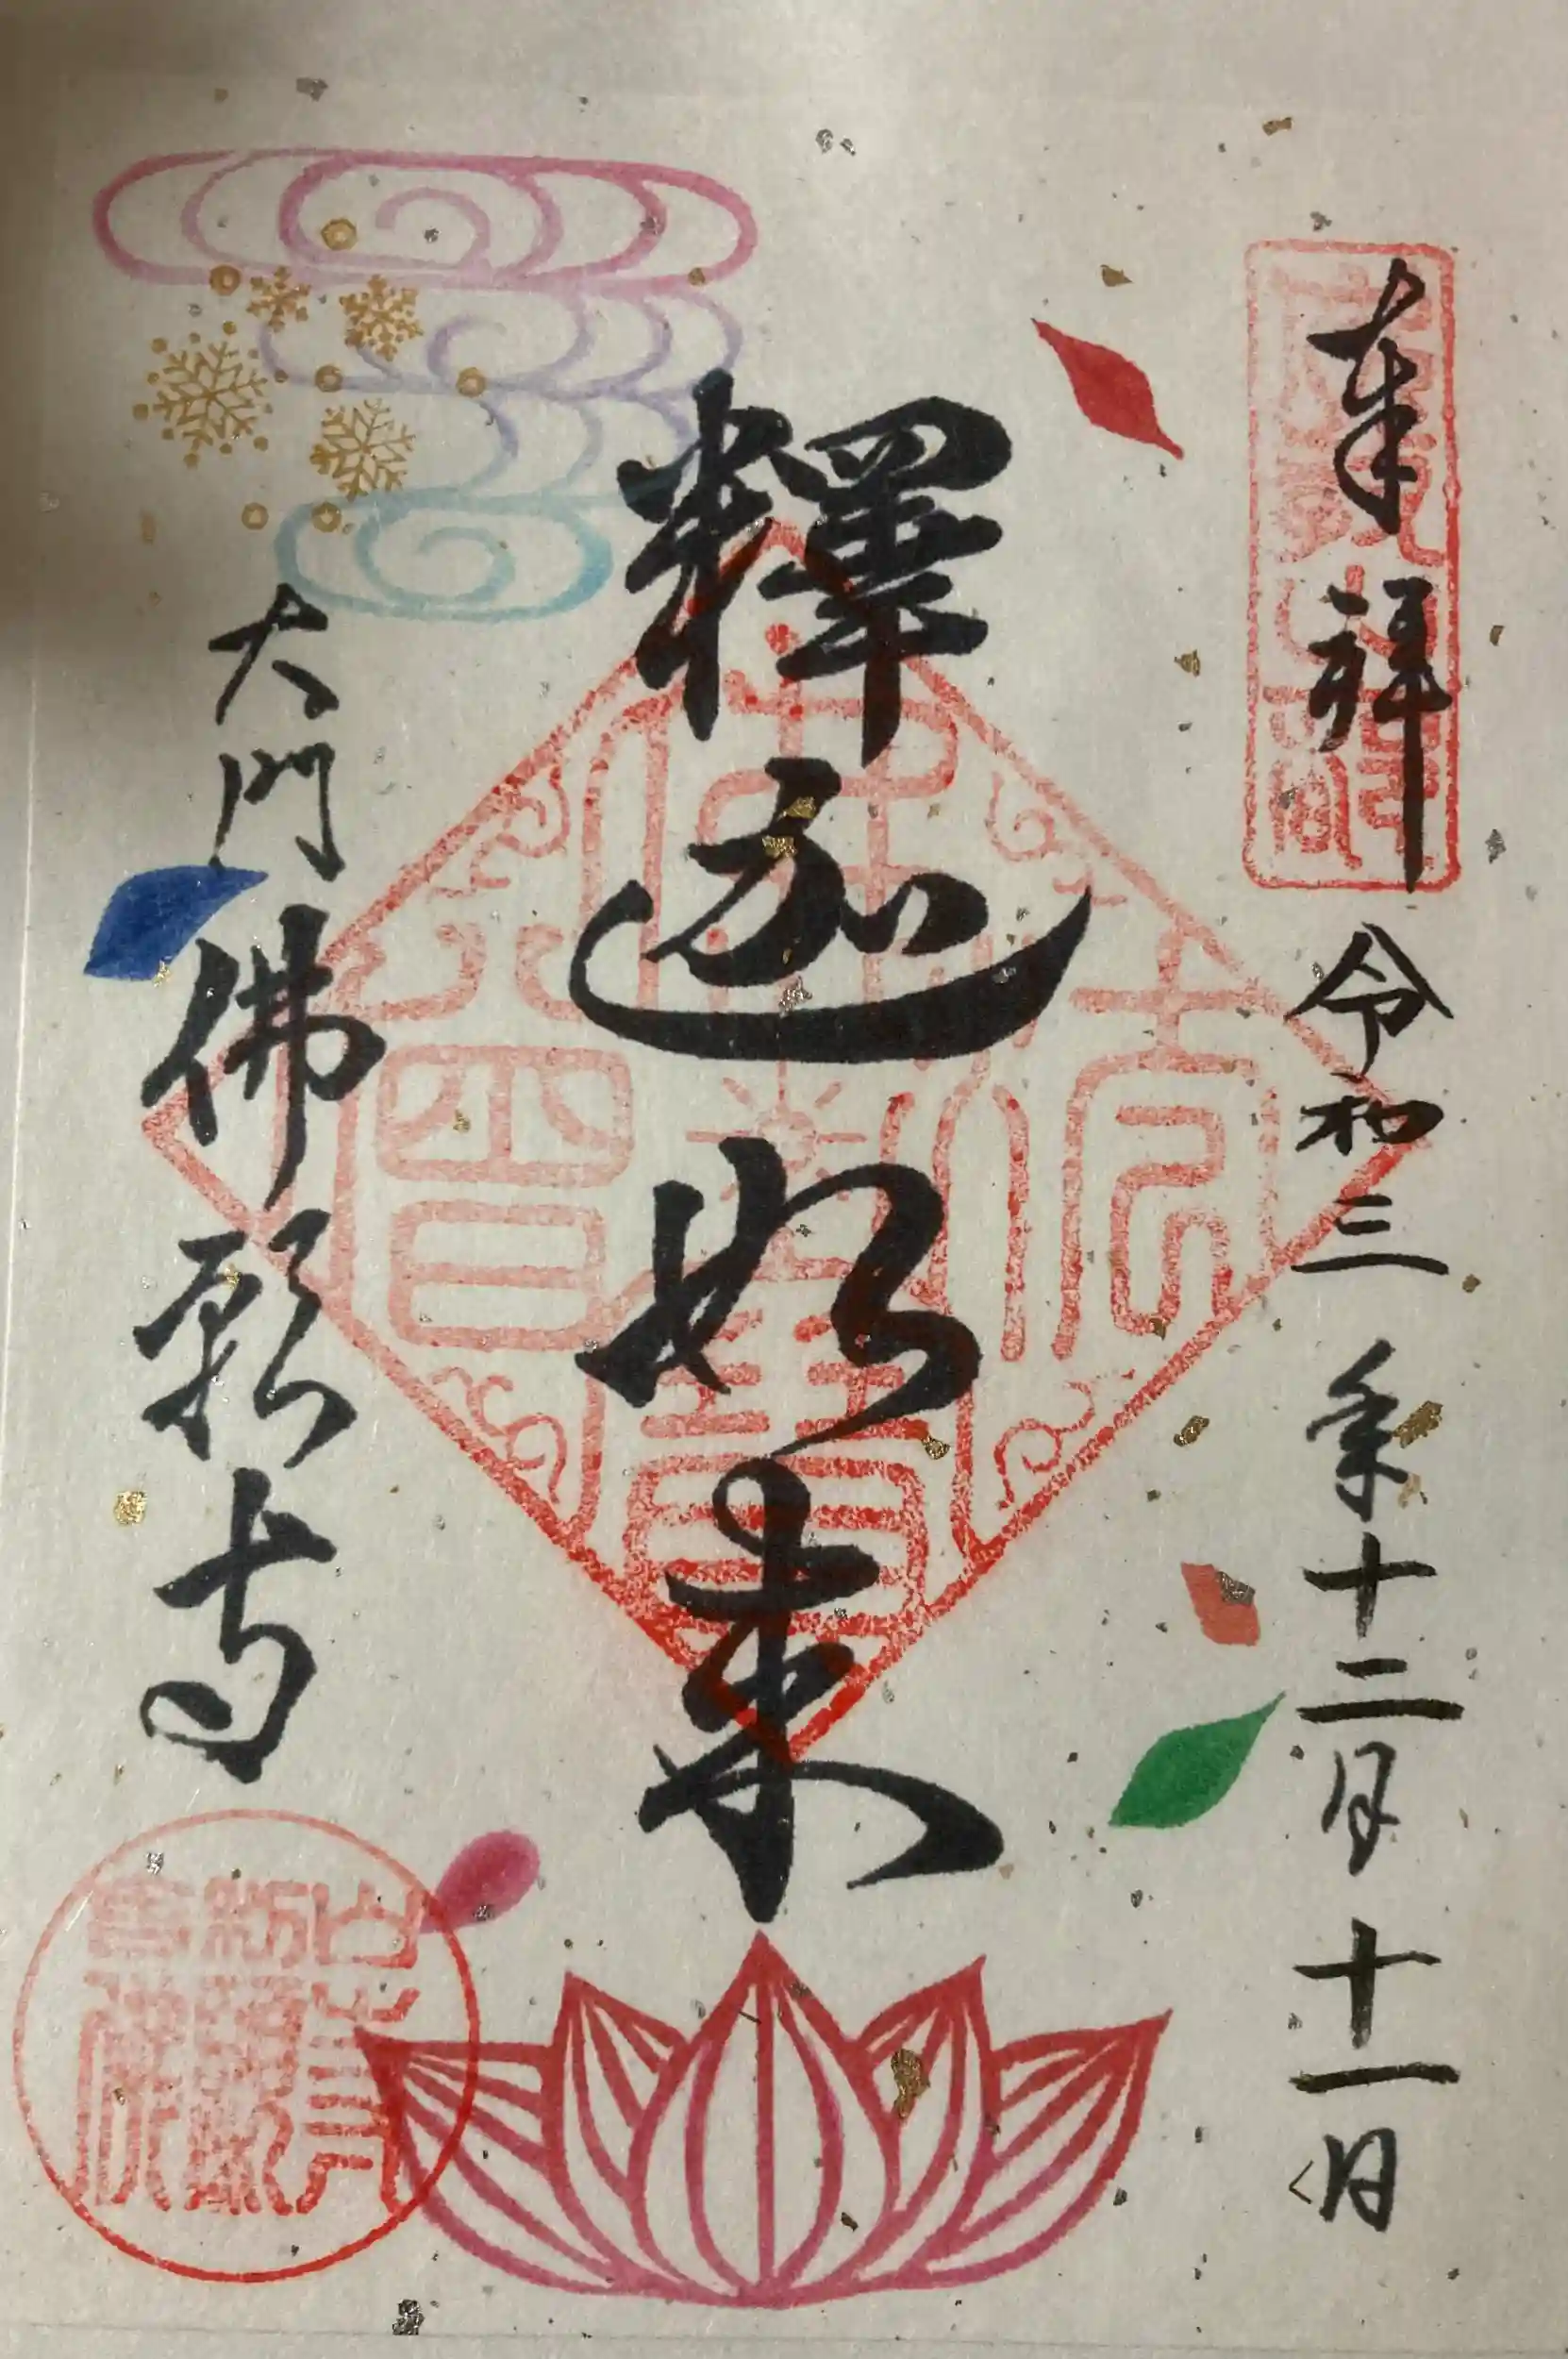 奉拜
令和三年十二月十一日
釋迦如来
大門佛願寺
佛法僧寶